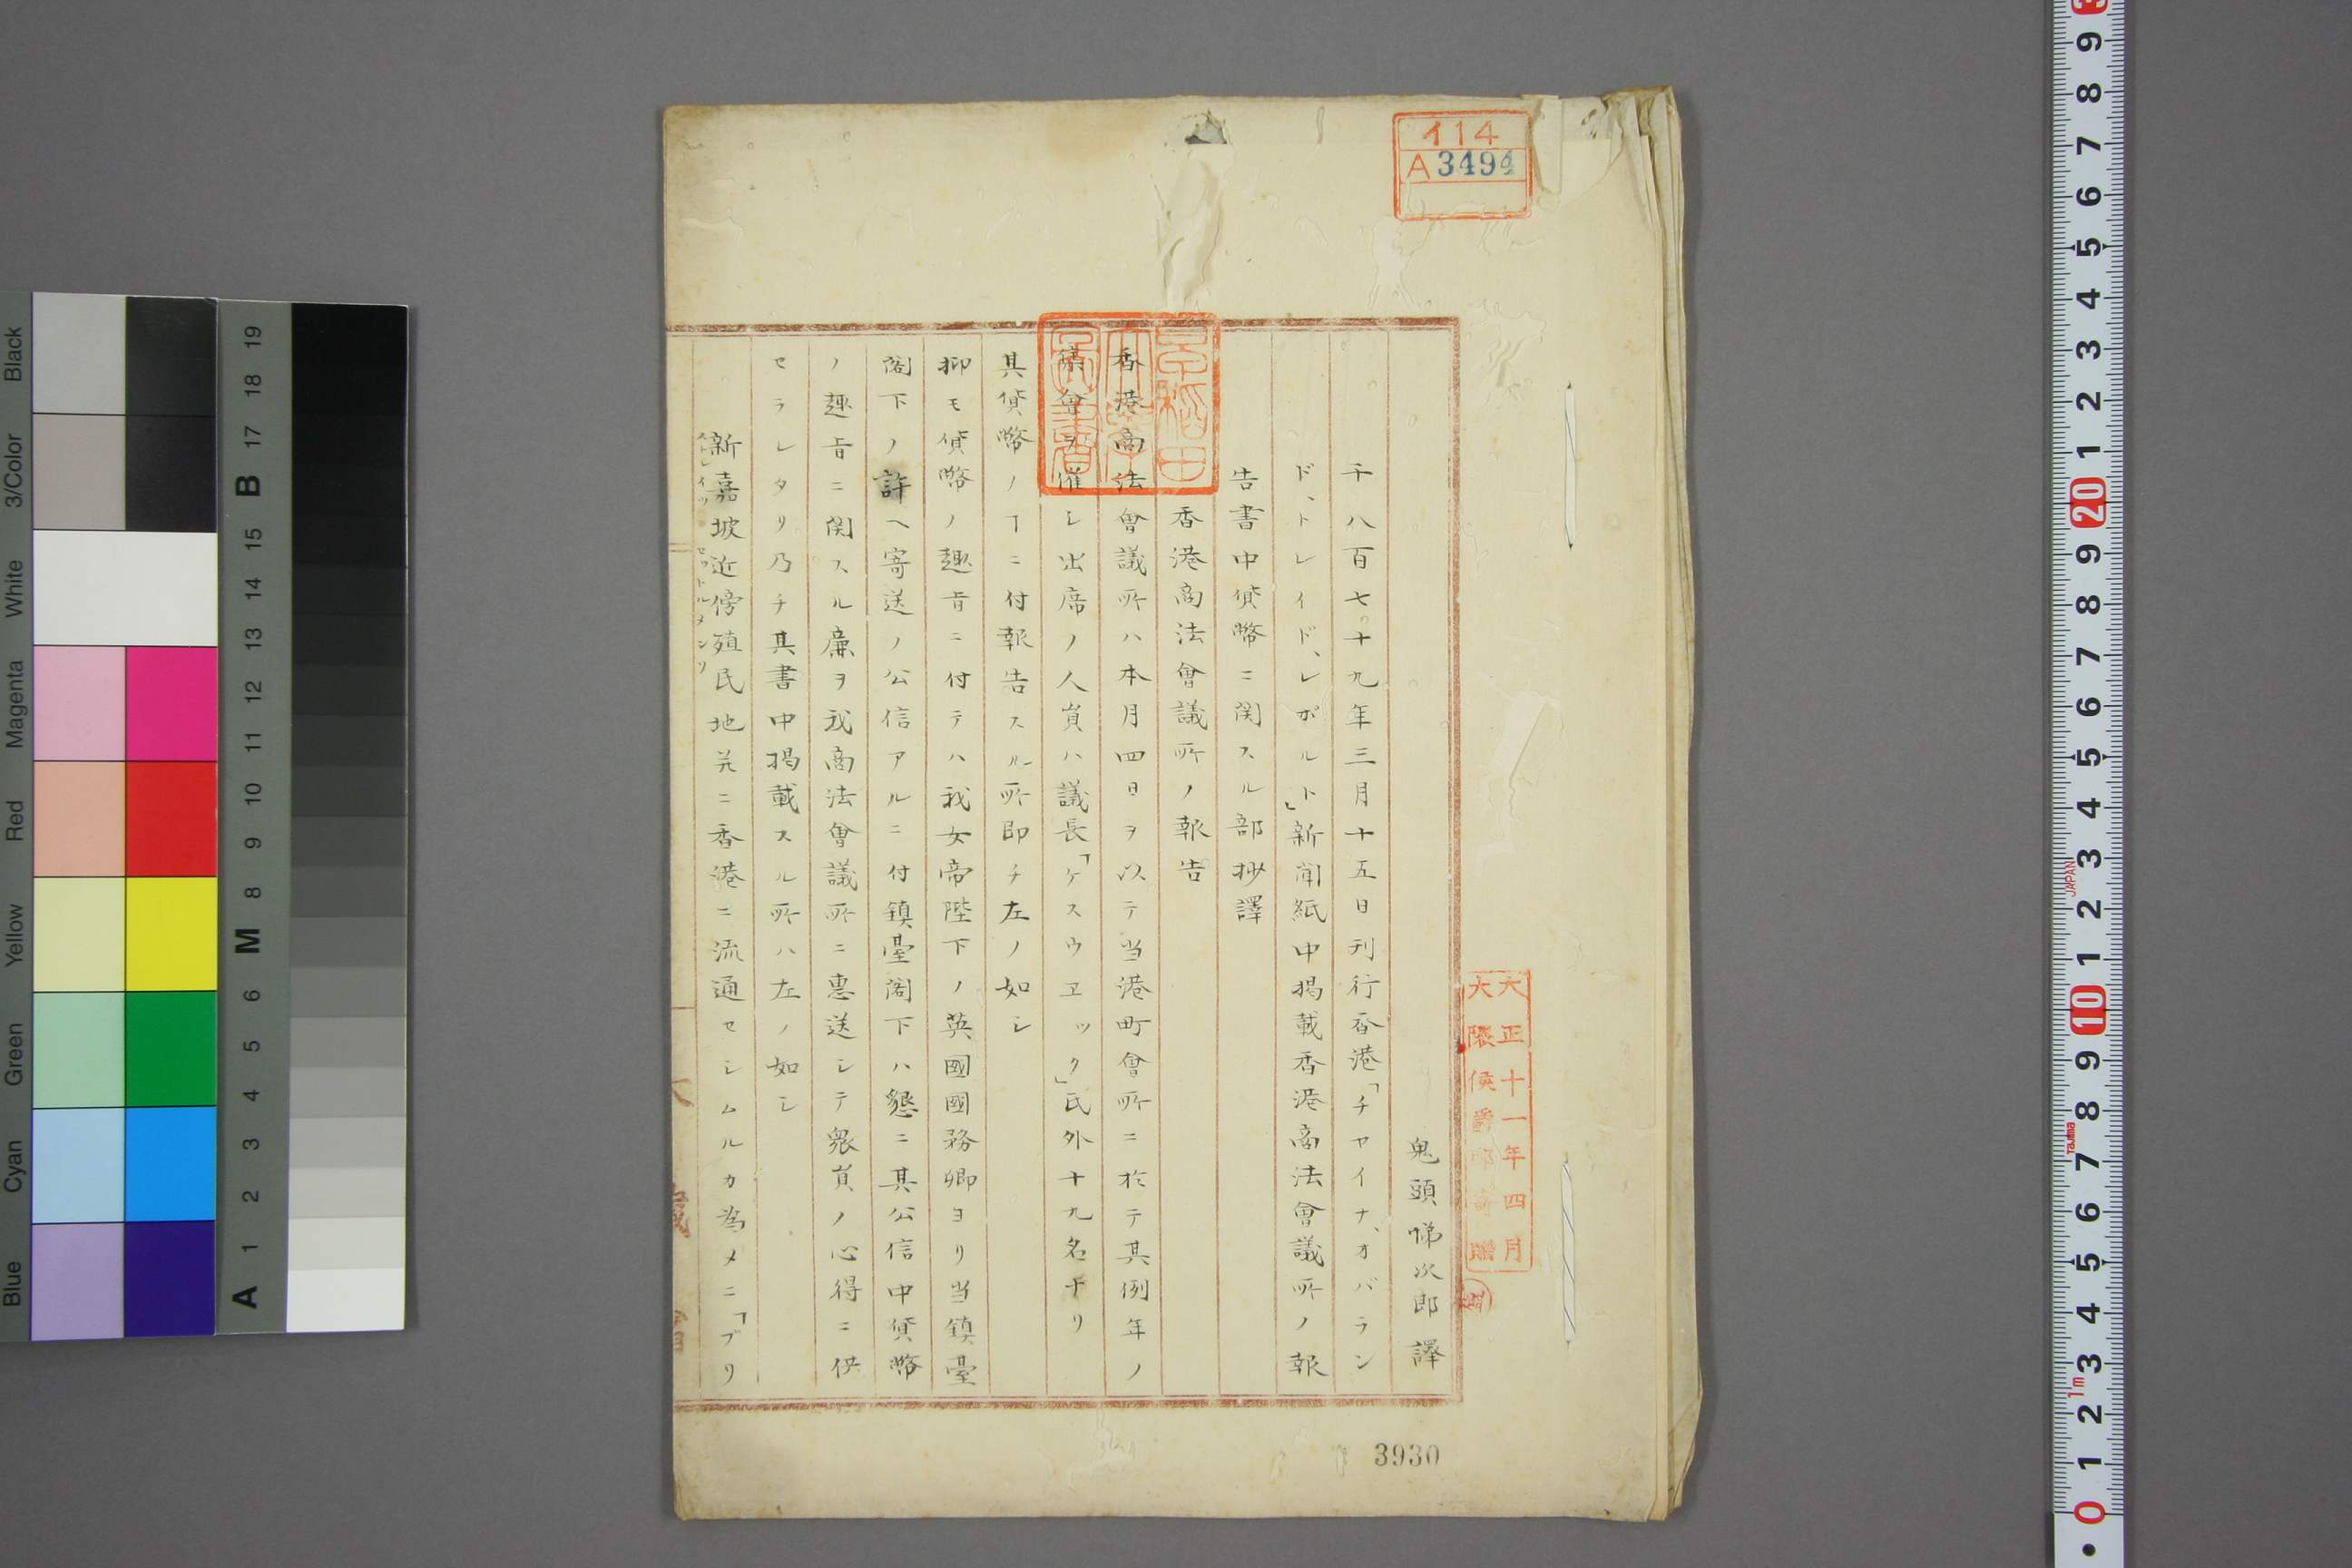 イ14
A3494
大正十一年四月
大隈侯爵邸寄贈
鬼頭悌次郎譯
千八百七十九年三月十五日刊行香港「チヤイナ、オバラン
ド、トレイド、レポルト」新聞紙中掲載香港商法會議所ノ報
告書中貨幣ニ関スル部抄譯
香港商法會議所ノ報告
香港商法會議所ハ本月四日ヲ以テ当港町會所ニ於テ其例年ノ
集會ヲ催シ出席ノ人員ハ議長「ケスウヱツク」氏外十九名ナリ
其貨幣ノヿニ付報告スル所即チ左ノ如シ
抑モ貨幣ノ趣旨ニ付テハ我女帝陛下ノ英國國務卿ヨリ当鎮臺
閣下ノ許ヘ寄送ノ公信アルニ付鎮臺閣下ハ懇ニ其公信中貨幣
ノ趣旨ニ関スル廉ヲ我商法會議所ニ惠送シテ衆員ノ心得ニ供
セラレタリ乃チ其書中掲載スル所ハ左ノ如シ
新嘉坡近傍殖民地并ニ香港ニ流通セシムルカ為メニ「ブリ
早稲田
大學
圖書
3930
Black
3/Color
White
Magenta
Red
Yellow
Green
Cyan
Blue
19
18
17
B
15
14
13
12
11
10
9
8
M
6
5
4
3
2
1
A
3
9
8
7
6
5
4
3
2
1
20
9
8
7
6
5
4
3
JAPAN
2
1
10
9
8
Tajima
7
6
5
4
3
1m
2
1
0